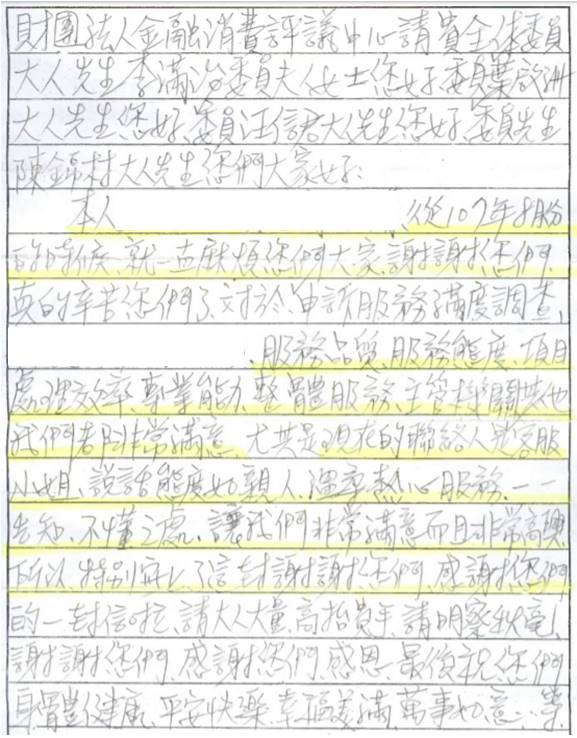 財團法人金融消費評議中心請貴全体委員
大人先生李滿治委員夫人女士您好委員葉啟洲
大人先生您好、委員汪信君大人先生您好、委員先生
陳錦村大人先生您們大家好:
本人 從107年8月份
的時候、就一直麻煩您們大家、謝謝您們、
真的辛苦您們了、對於、申訴服務滿度調查、
、服務品質、服務態度、項目
處理效率、專業能力、整體服務、主管機關其他
我們都非常滿意、尤其是現在的聯絡人是客服
小姐、說話態度如親人、溫率熱心服務、一一
告知、不懂之處、讓我們非常滿意而且非常高興
所以、特別寫了這封謝謝您們、感謝您們
的一封信啦、請大人大量、高抬貴手、請明察秋毫、
謝謝您們、感謝您們、感恩、最後祝您們
身體健康、平安快樂、幸福美滿、萬事如意…等、